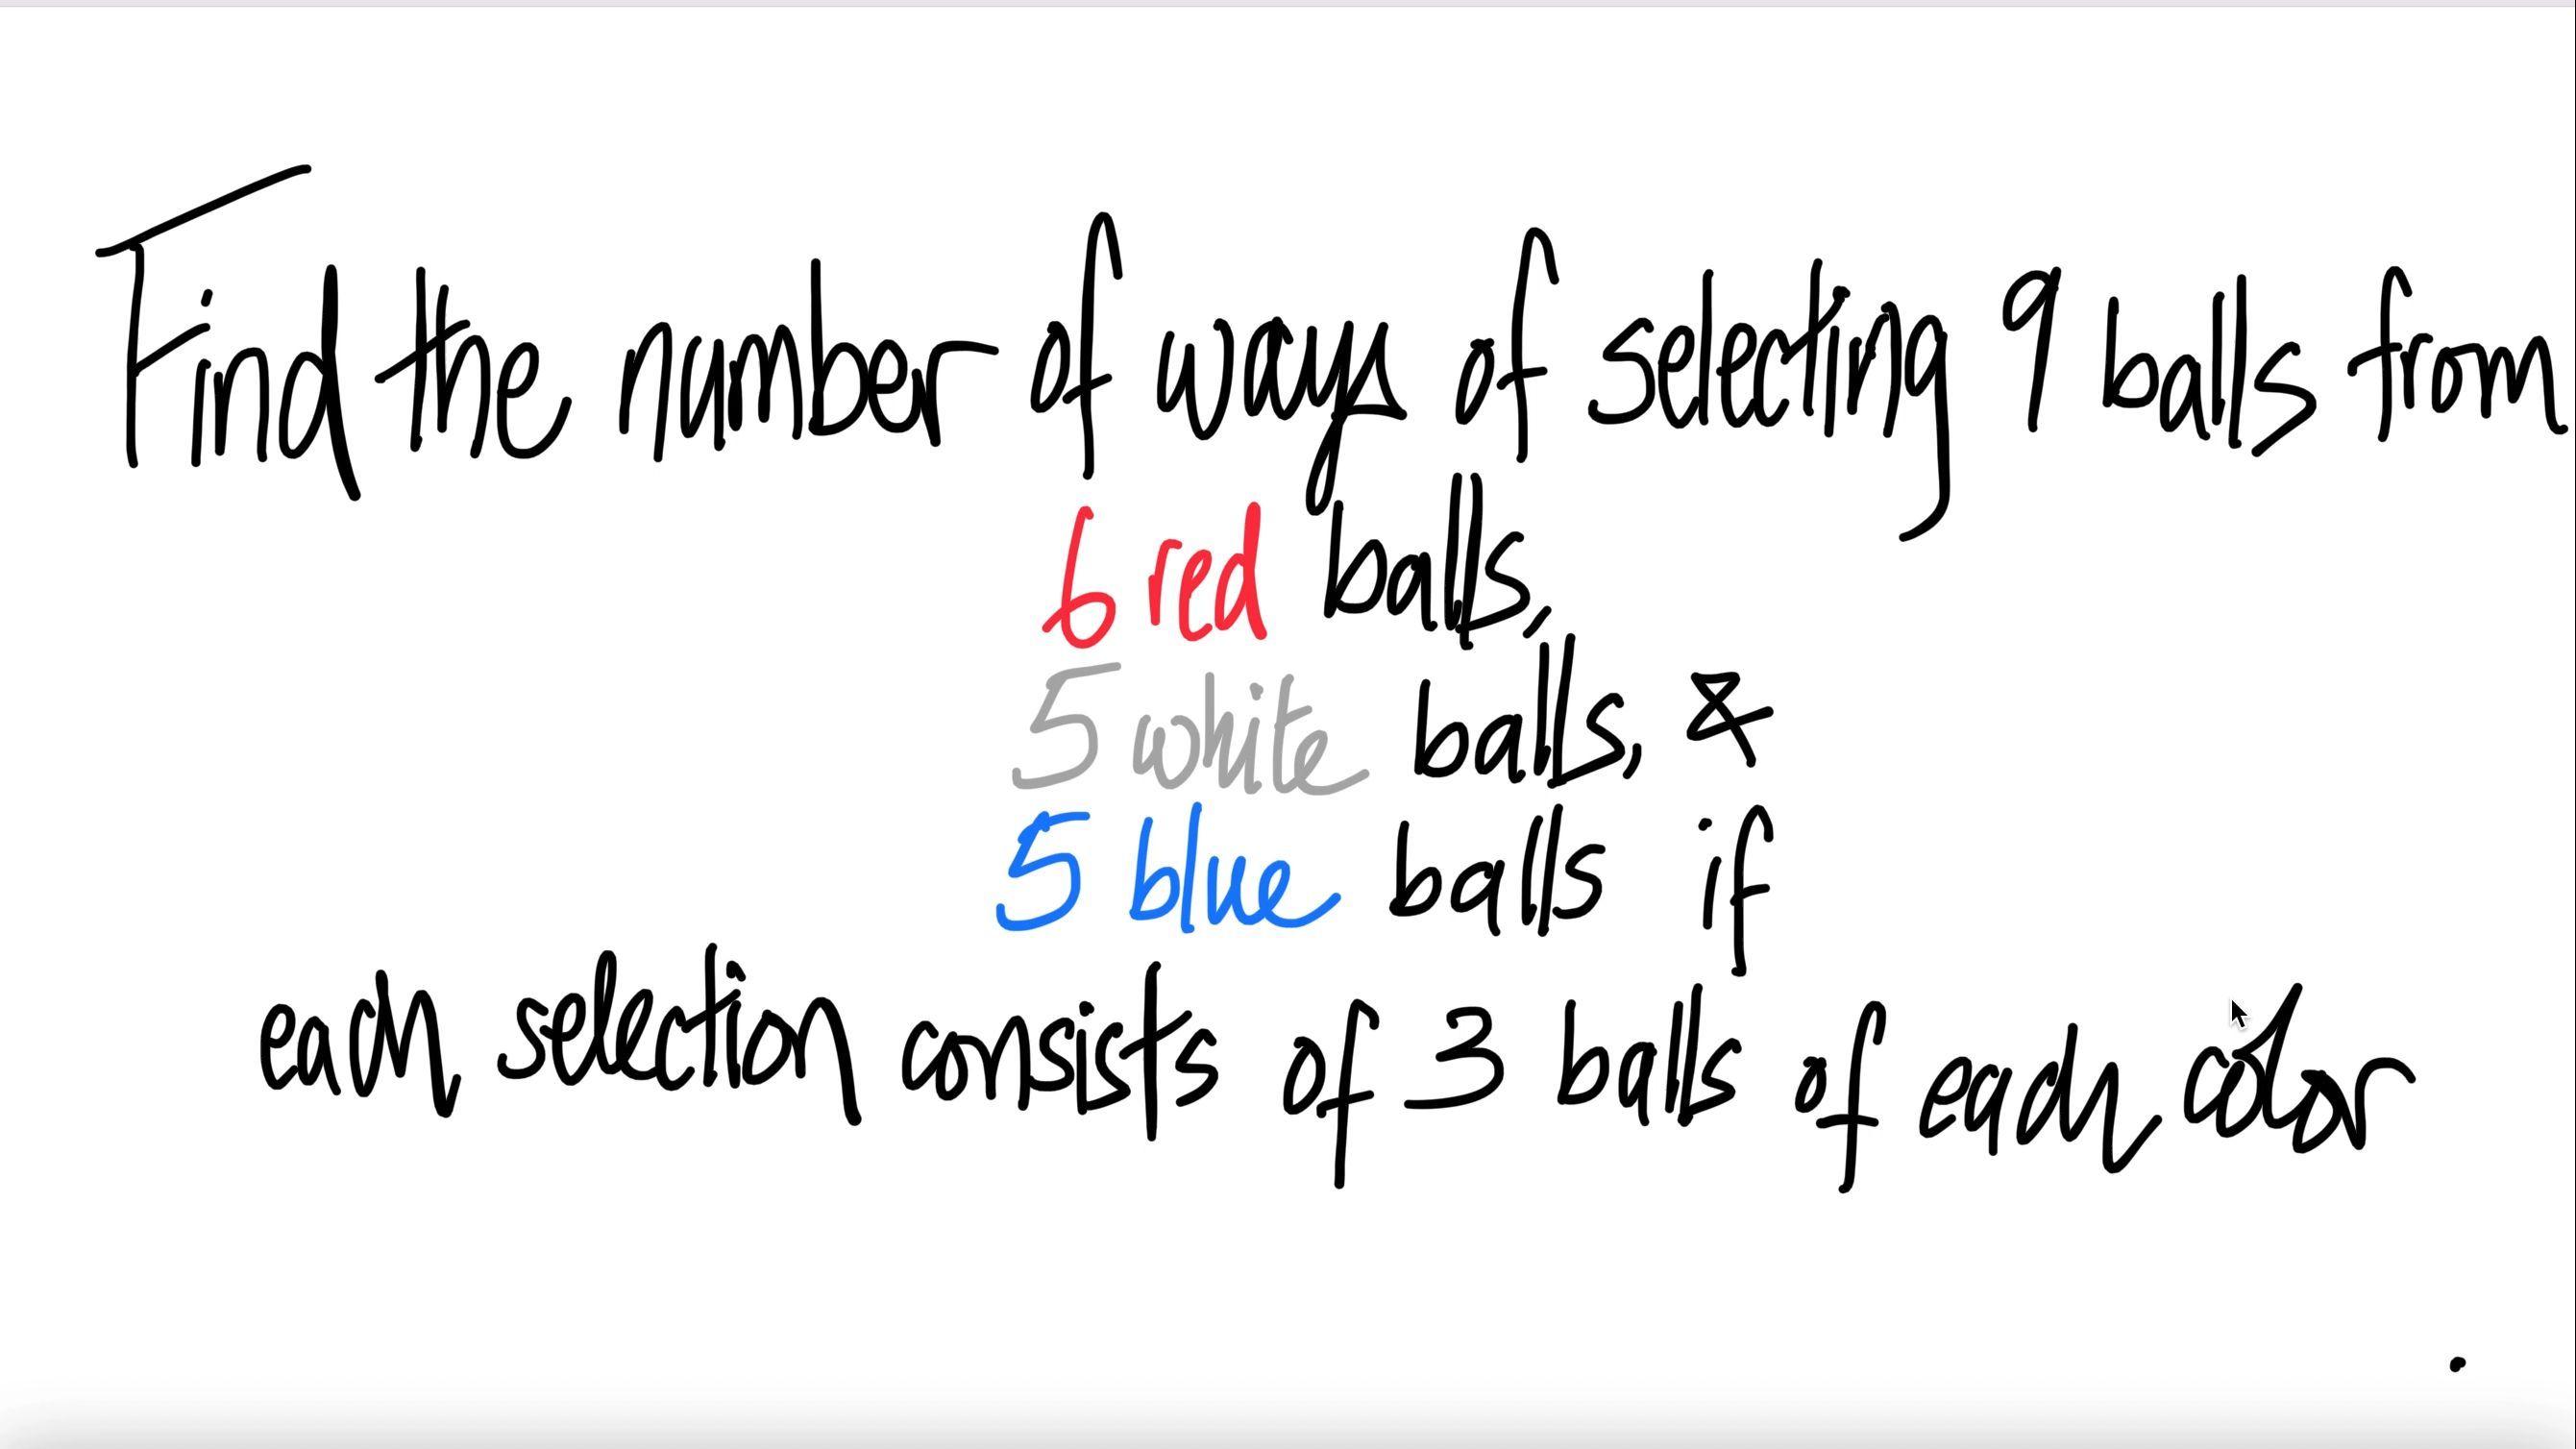 Find the number of ways of selecting 9 balls from
6 red balls,
5 white balls, &
5 blue balls if
each selection consists of 3 balls of each color
.